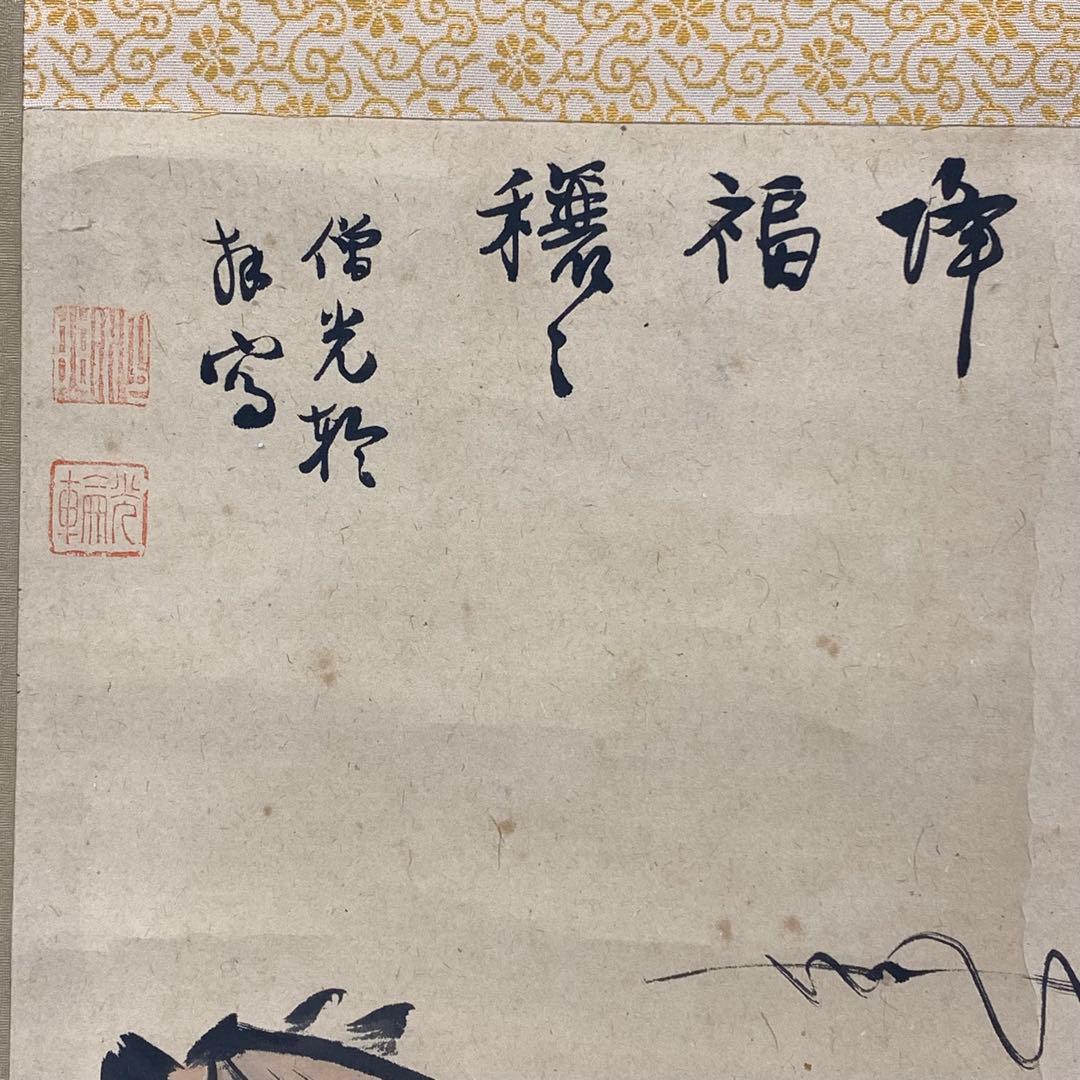 降福穰々
僧光輪
拜寫
光輪